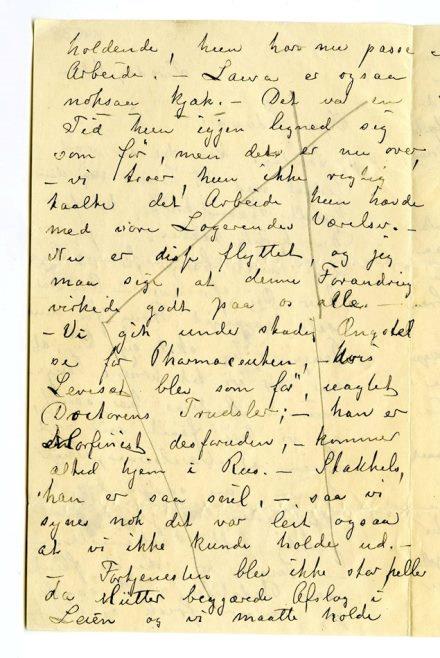 holdende, hun har nu passe
Arbeide! – Laura er ogsaa
noksaa kjæk. – Det var en
Tid hun igjen ligned sig
som før, men det er nu over,
– vi troer, hun ikke rigtig
taalte det Arbeide hun havde
med vore Logerendes Værelser. –
Nu er disse flyttet, og jeg
maa sige, at denne Forandring
virkede godt paa os alle. –
– Vi gik under stadig Ængstel
se for Pharmaceuten, – hvis
Levisæt blev som før, uagtet
Doctorens Trudsler; – han er
Morfinist desforuden, – kommer
altid hjem i Rus. – Stakkels,
han er saa snil, – saa vi
synes nok det var leit ogsaa
at vi ikke kunde holde ud. –
– Fortjenesten blev ikke stor heller
da Mutter begjærede Afslag i
Leien og vi maatte holde